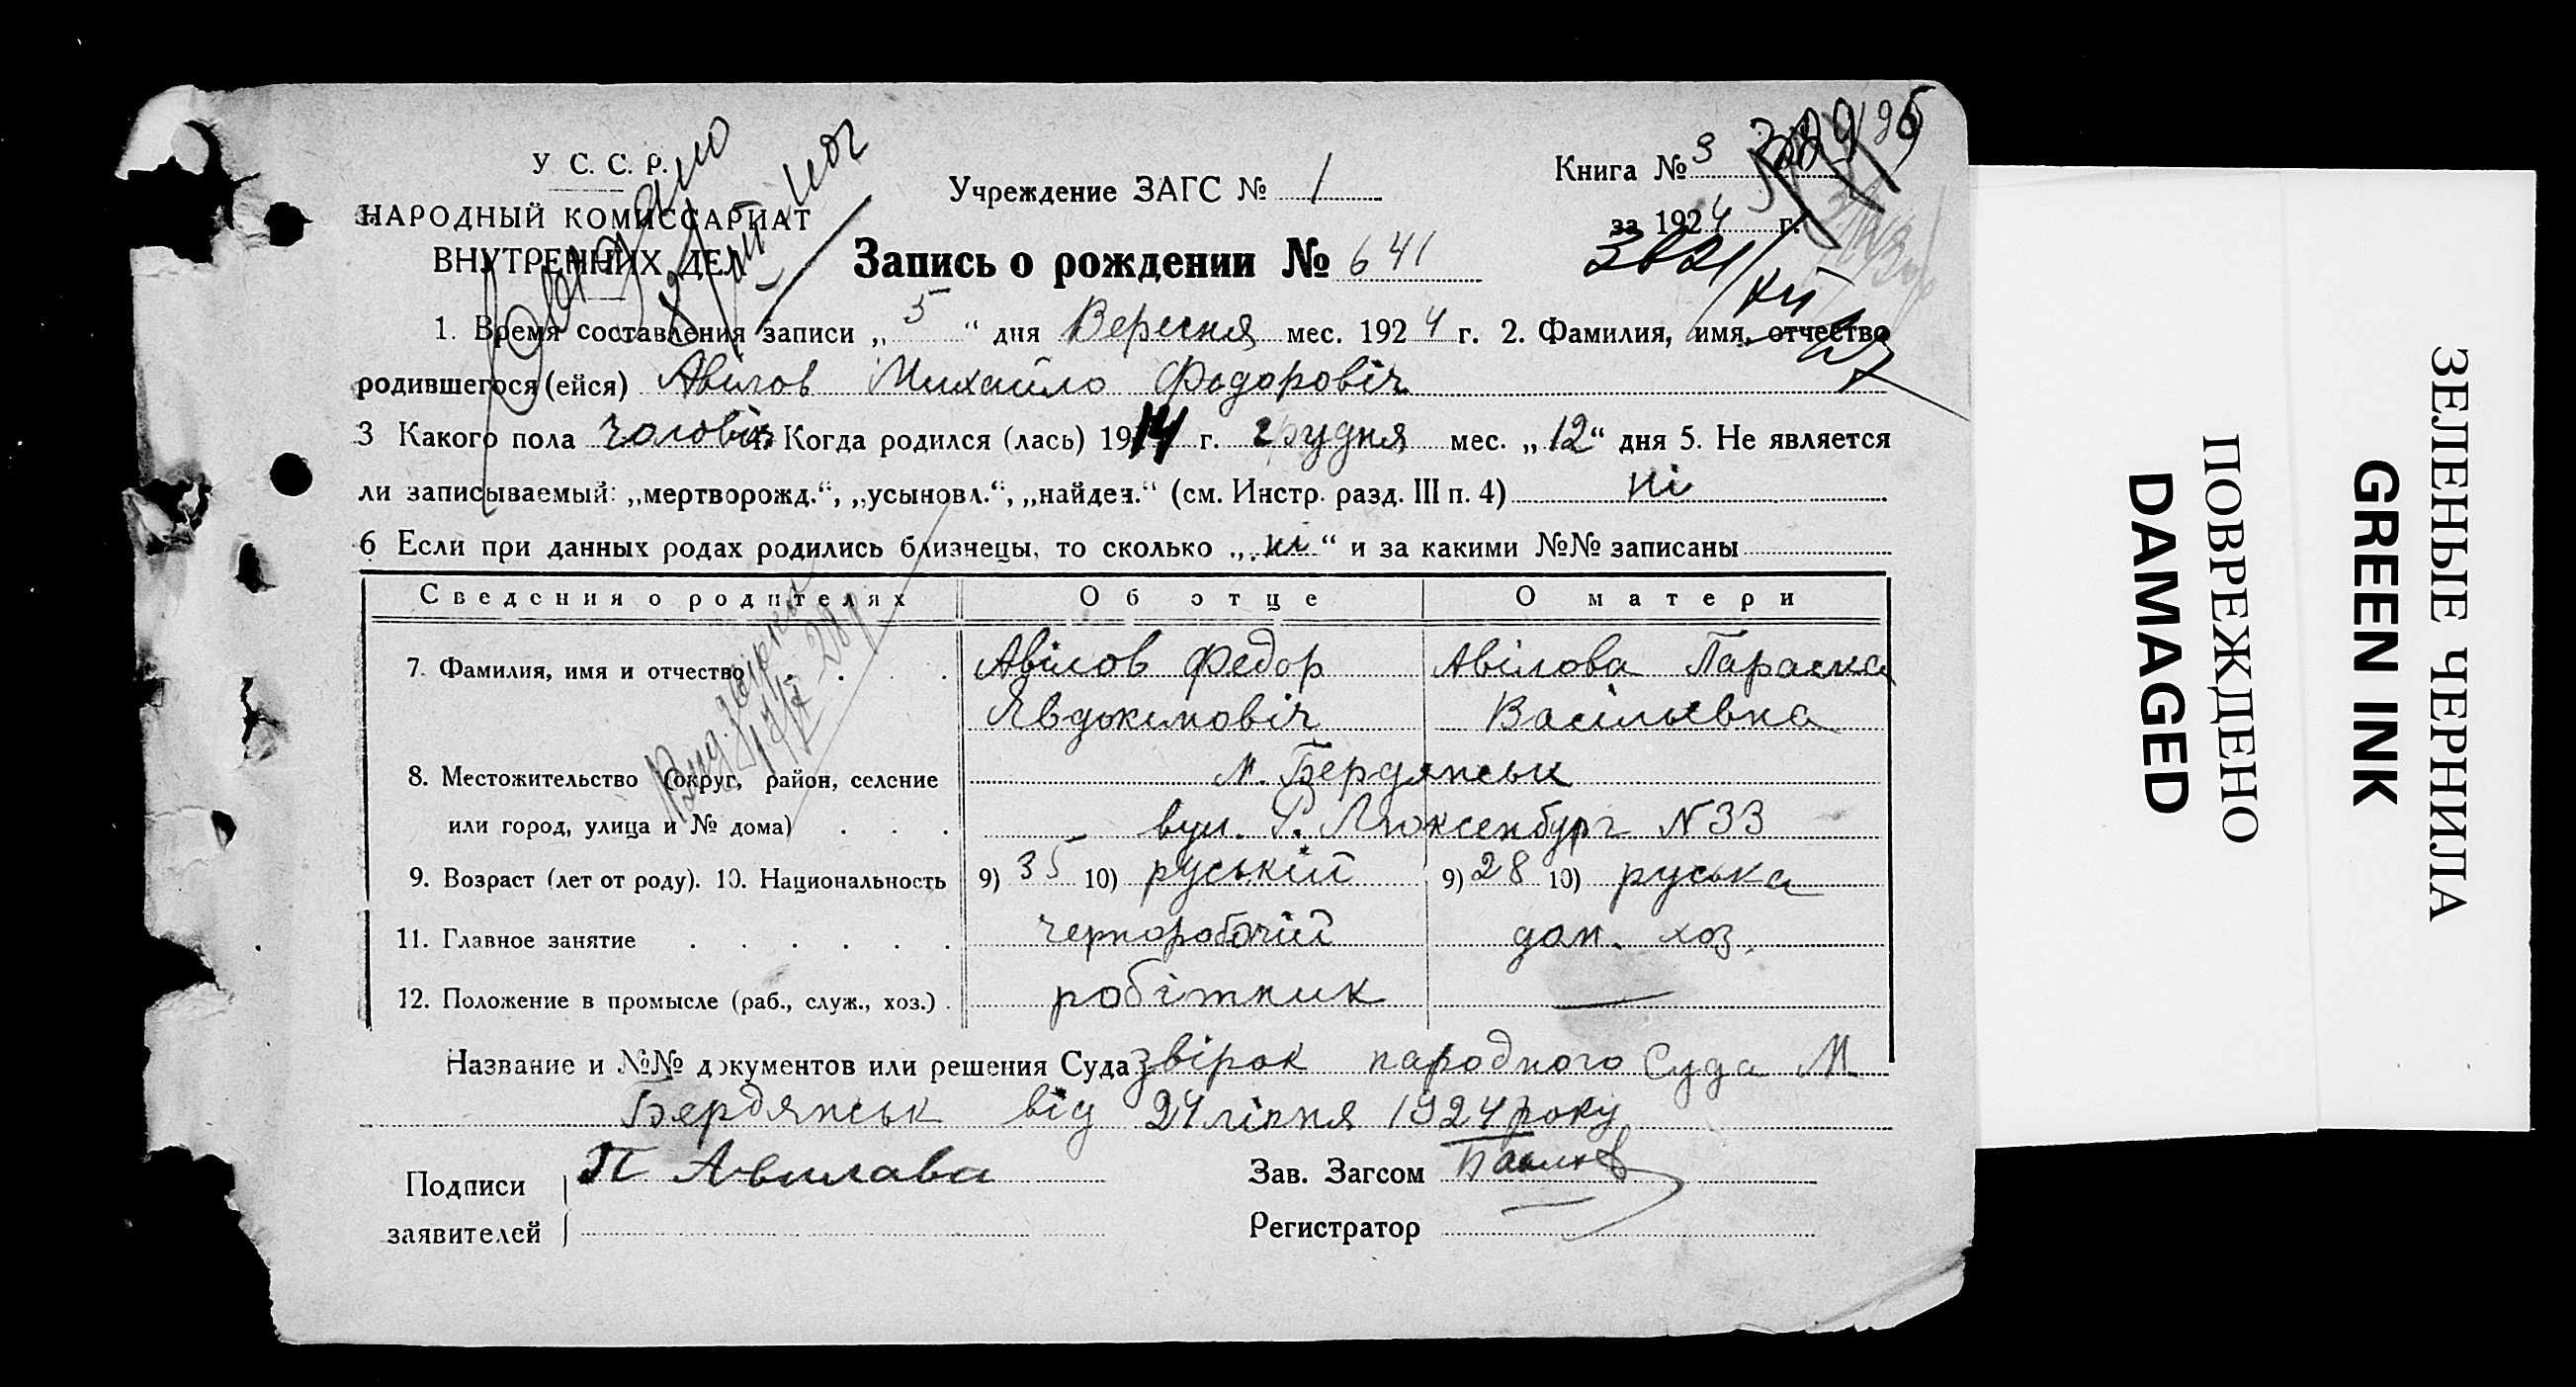 У С. С. Р.
НАРОДНЫЙ КОМИССАРИАТ
ВНУТРЕННИХ ДЕЛ
Учреждение ЗАГС № 1
Книга № 3
за 1924 г.
Запись о рождении № 641
1. Время составления записи „ 5 “ дня Вересня мес. 1924 г. 2. Фамилия, имя, отчество
родившегося (ейся) Авілов Михайло Федоровіч
3 Какого пола чоловік 4. Когда родился (лась) 1914 г. грудня мес. „ 12 “ дня 5. Не является
ли записываемый: „мертворожд.“, „усыновл.“, „найден.“ (см. Инстр. разд. III п. 4) ні
6 Если при данных родах родились близнецы, то сколько „ ні “ и за какими №№ записаны
Сведения о родителях Об отце О матери
7. Фамилия, имя и отчество Авілов Федор Авілова Параска
Явдокимовіч Васільевна
8. Местожительство (округ, район, селение М. Бердянськ
или город, улица и № дома) вул. Р. Люксенбург N 33
9. Возраст (лет от роду). 10. Национальность 9) 35 10) руській 9) 28 10) руська
11. Главное занятие чорноробочій дом. хоз.
12. Положение в промысле (раб., служ., хоз.) робітник —
Название и №№ документов или решения Суда звірок народного Суда М
Бердянськ від 24 ліпня 1924 року
Подписи П Авилава Зав. Загсом
заявителей Регистратор
ПОВРЕЖДЕНО
DAMAGED
ЗЕЛЕНЫЕ ЧЕРНИЛА
GREEN INK